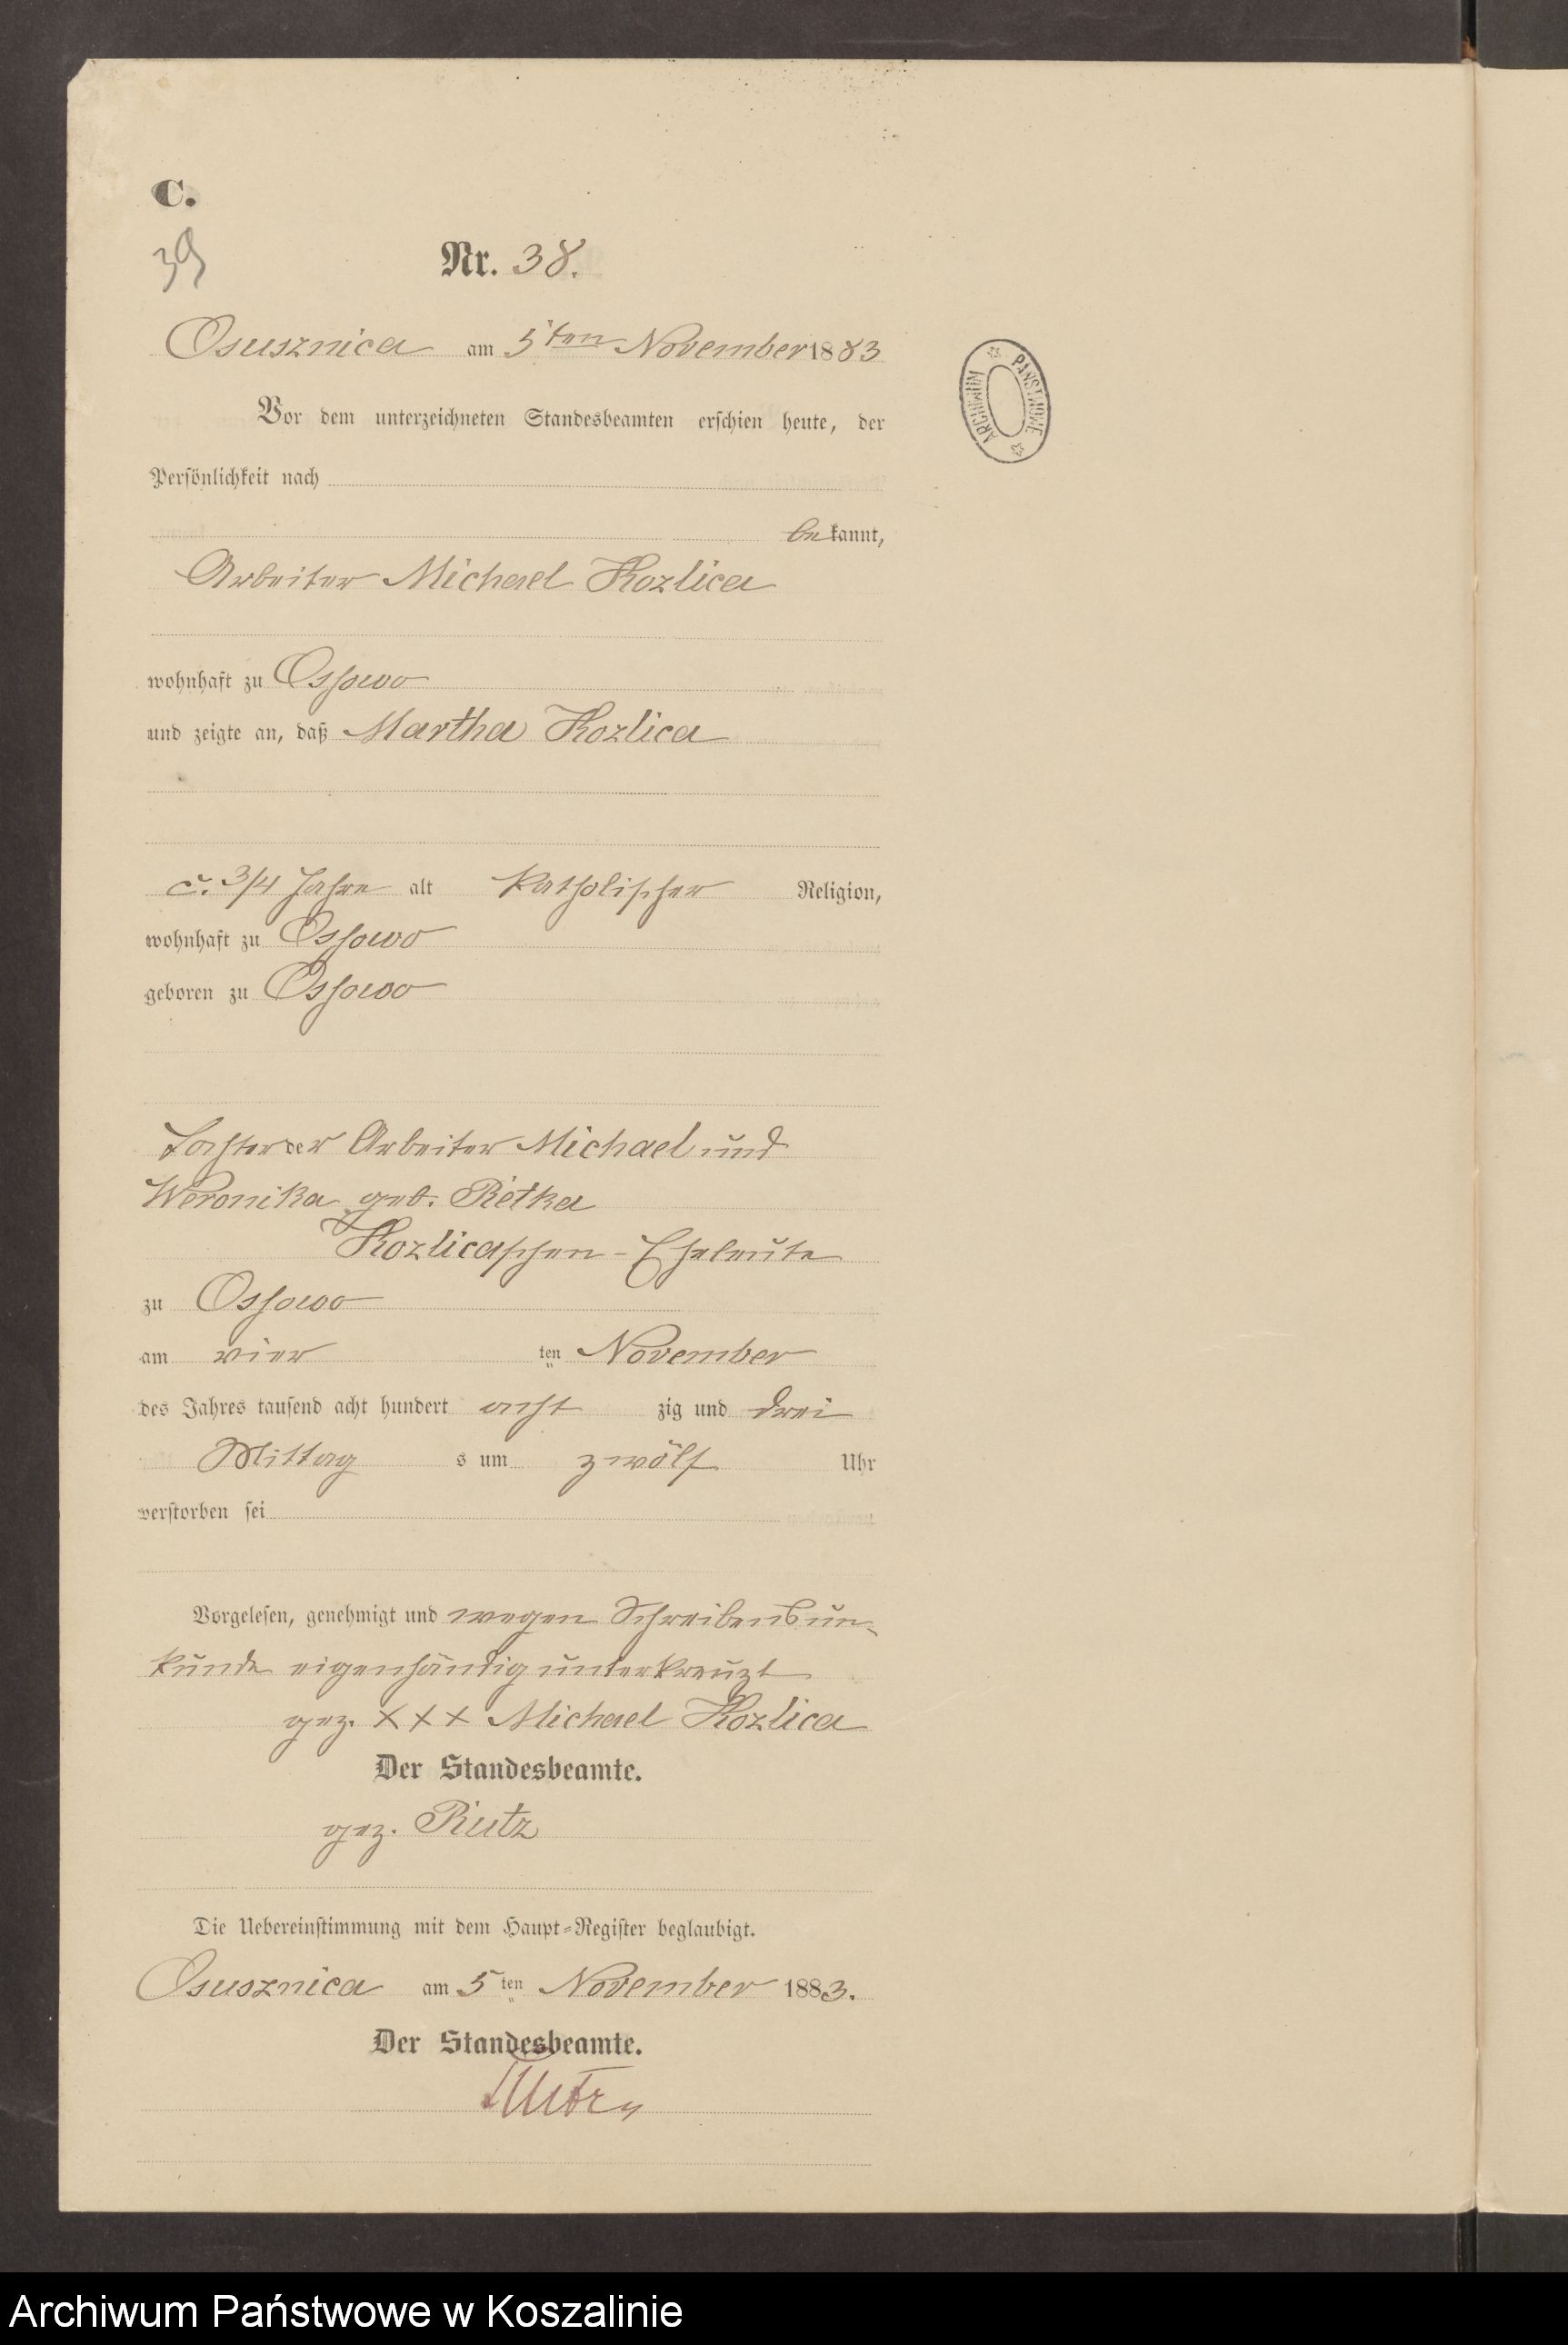 C.
39
Nr. 38.
Osusznica am 5ten November 1883
Vor dem unterzeichneten Standesbeamten erschien heute, der
Persönlichkeit nach
be kannt,
Arbeiter Michael Kozlica
wohnhaft zu Ossowo
und zeigte an, daß Martha Kozlica
c. 3/4 Jahre alt katholischer Religion,
wohnhaft zu Ossowo
geboren zu Ossowo
Tochter der Arbeiter Michael und
Weronika geb. Rietka
Kozlicaschen-Eheleute
zu Ossowo
am vier ten November
des Jahres tausend acht hundert acht zig und drei
Mittag s um zwölf Uhr
verstorben sei
Vorgelesen, genehmigt und wegen Schreibensun-
kunde eigenhändig unterkreuzt
gez. XXX Michael Kozlica
Der Standesbeamte.
gez. Rutz
Die Uebereinstimmung mit dem Haupt=Register beglaubigt.
Osusznica am 5ten November 1883.
Der Standesbeamte.
Rutz
ARCHIWUM PAŃSTWOWE
Archiwum Państwowe w Koszalinie